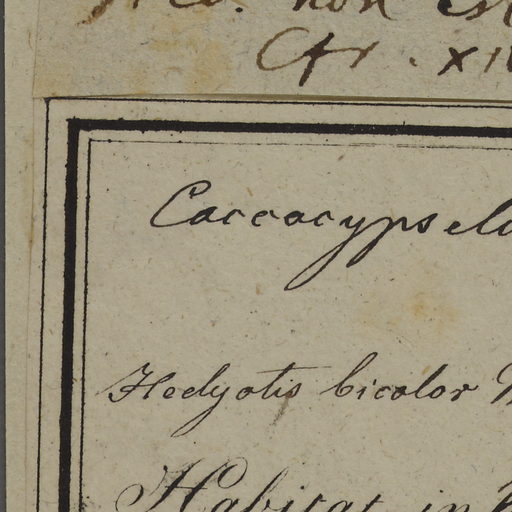 non
Cfr. XI
Coccocypselu
Hedyotis bicolor
Habitat in